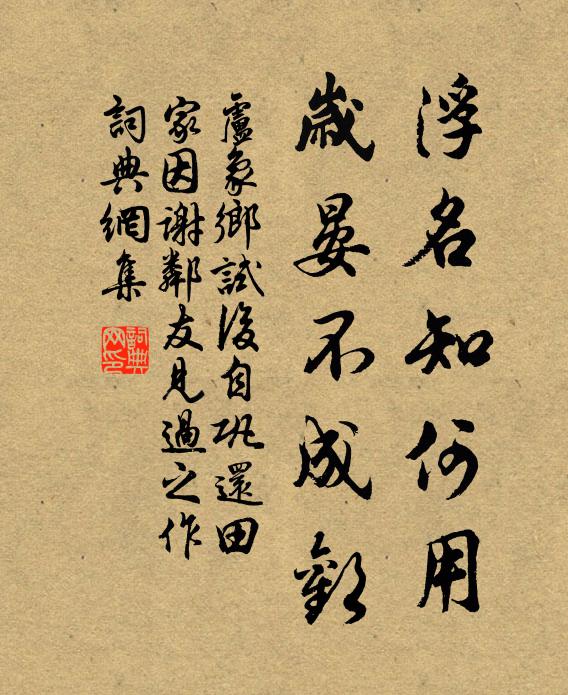 浮名知何用
歲晏不成歡
盧象鄉試後自巩還田
家因谢鄰友見過之作
詞典網集
詞典网印